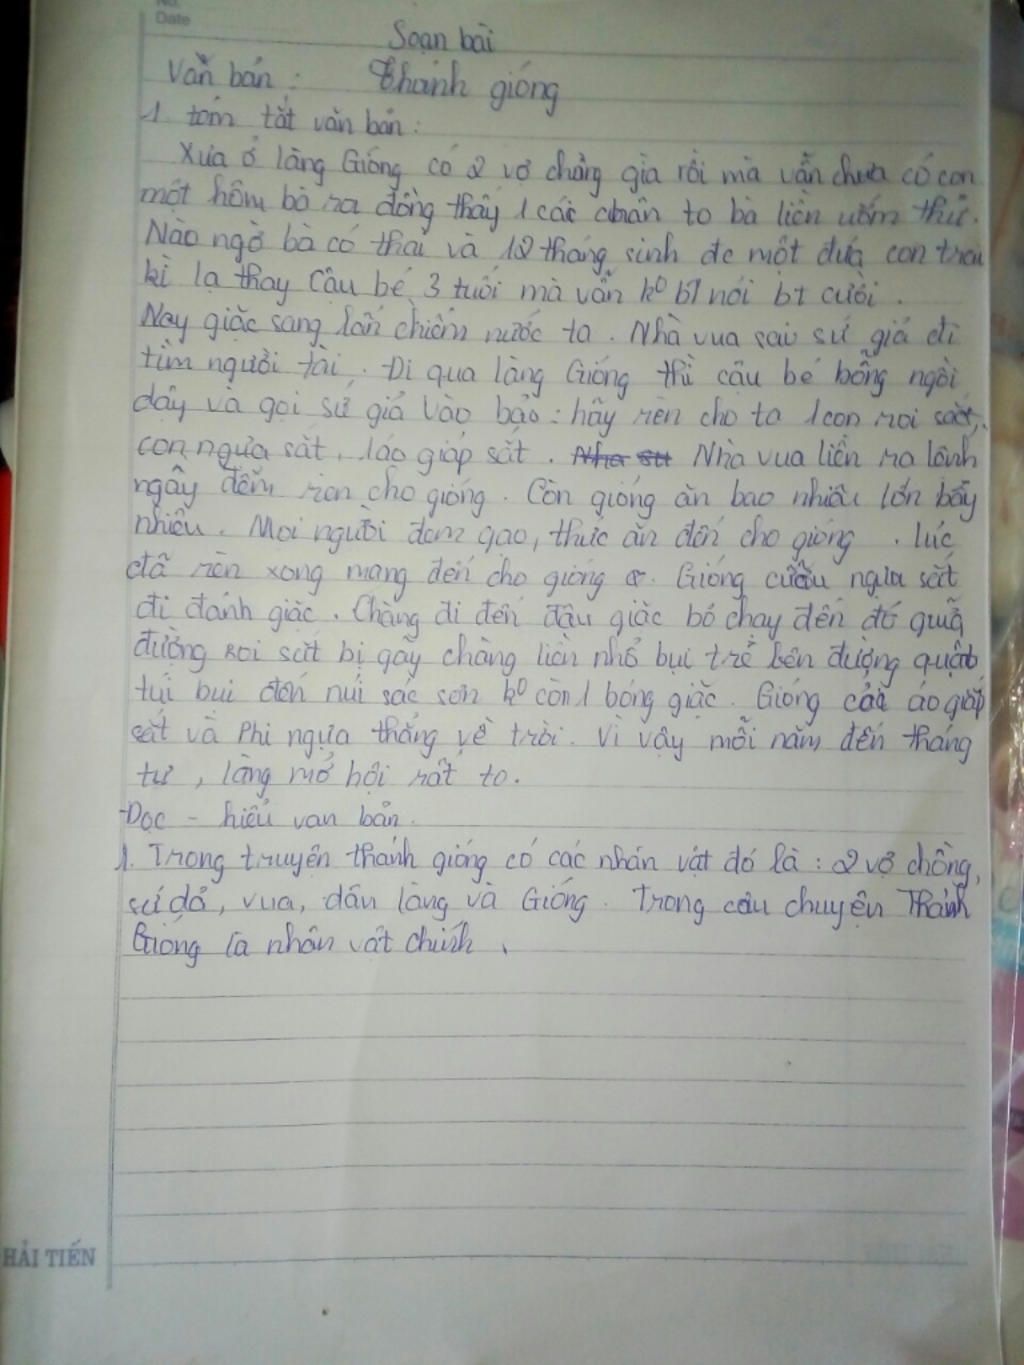 No.
Date
Soạn bài
Văn bản : Thánh gióng
1. tóm tắt văn bản :
Xưa ở làng Gióng có 2 vợ chồng già rồi mà vẫn chưa có con
một hôm bà ra đồng thấy 1 các chân to bà liền ướm thử.
Nào ngờ bà có thai và 12 tháng sinh đc một đứa con trai
kì lạ thay Cậu bé 3 tuổi mà vẫn k⁰ bt nói bt cười.
Nay giặc sang lấn chiếm nước ta. Nhà vua sai sứ giả đi
tìm người tài. Đi qua làng Gióng thì cậu bé bỗng ngồi
dậy và gọi sứ giả vào bảo : hãy rèn cho ta 1 con roi sắt,
con ngựa sắt, 1 áo giáp sắt. Nhà vua liền ra lệnh
ngày đêm rèn cho gióng. Còn gióng ăn bao nhiêu lớn bấy
nhiêu. Mọi người đem gạo, thức ăn đến cho gióng. lúc
đã rèn xong mang đến cho gióng. Gióng cưỡi ngựa sắt
đi đánh giặc. Chàng đi đến đâu giặc bỏ chạy đến đó quẫ
đường roi sắt bị gãy chàng liền nhổ bụi tre bên đường quật
túi bụi đến núi sác sơn k⁰ còn 1 bóng giặc. Gióng cởi áo giáp
sắt và Phi ngựa thẳng về trời. Vì vậy mỗi năm đến tháng
tư, làng mở hội rất to.
-Đọc - hiểu van bản.
1. Trong truyện thánh gióng có các nhân vật đó là : 2 vợ chồng,
sứ dả, vua, dân làng và Gióng. Trong câu chuyện Thánh
Gióng là nhân vật chính.
HẢI TIẾN